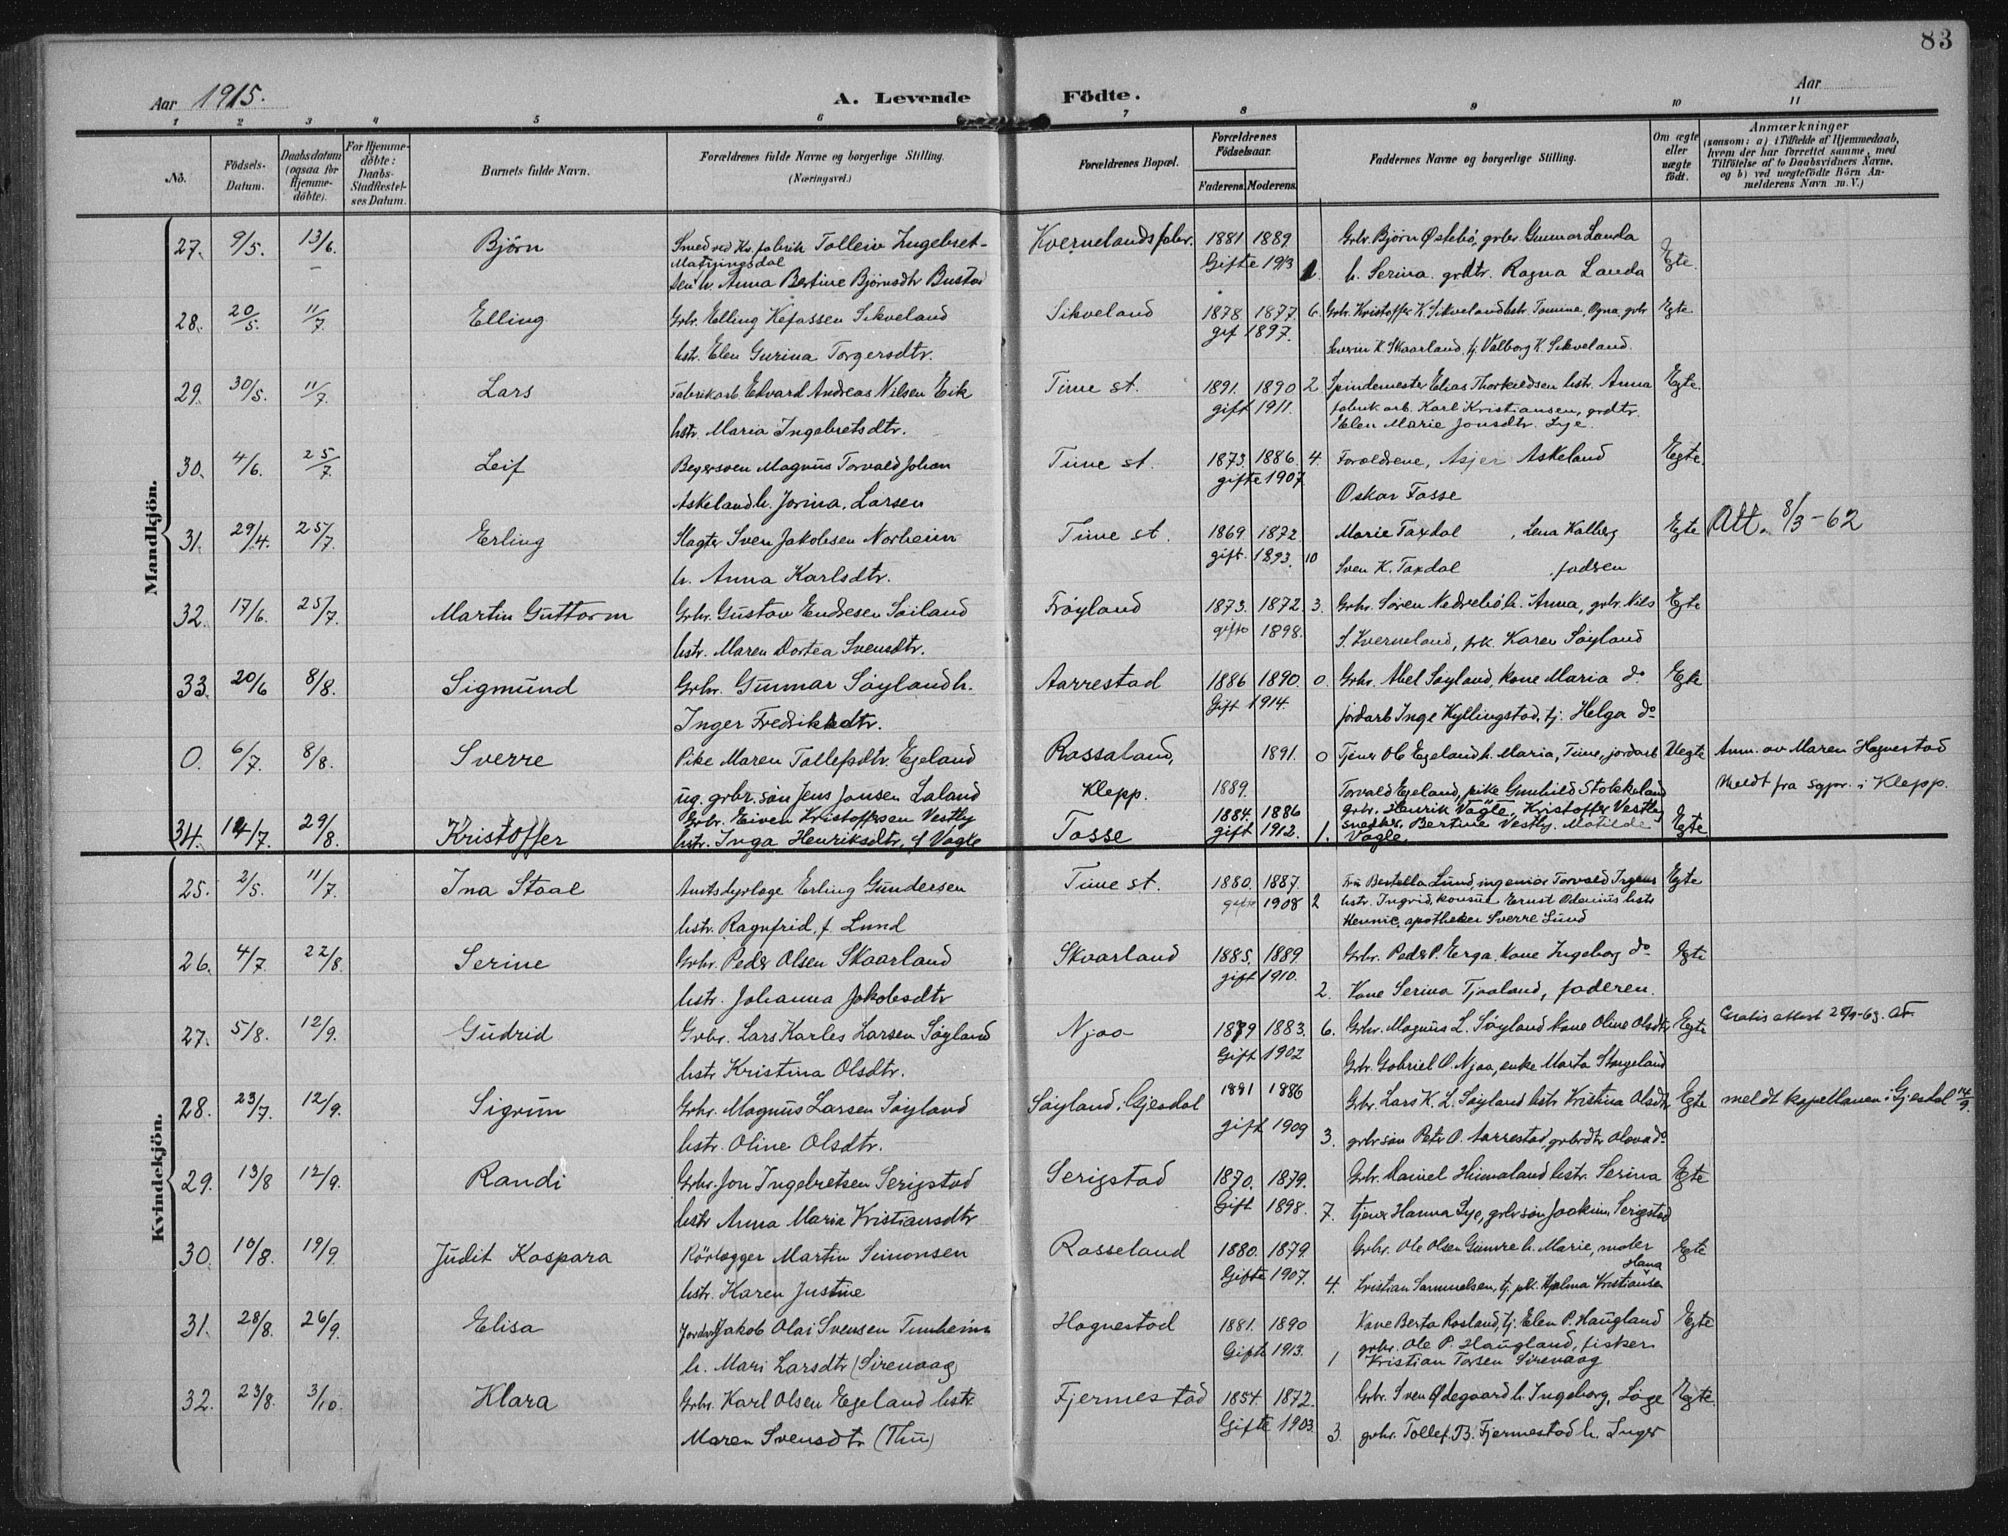 83
Aar 1915.
A. Levende Födte.
Aar
1 2 3 4 5 6 7 8 9 10 11
No.
Födsels-Datum.
Daabsdatum (ogsaa for Hjemmedöbte).
For Hjemmedöbte: Daabs-Stadfæstelses Datum.
Barnets fulde Navn.
Forældrenes fulde Navne og borgerlige Stilling.
(Næringsvei.)
Forældrenes Bopæl.
Forældrenes Födselsaar.
Faderens. Moderens.
Faddernes Navne og borgerlige Stilling.
Om ægte eller uægte födt.
Anmærkninger
(saasom: a) i Tilfælde af Hjemmedaab, hvem der har forrettet samme, med Tilföielse af to Daabsvidners Navne, og b) ved uægtefödte Börn Anmelderens Navn m. V.)
Mandkjön.
27. 9/5. 13/6. Björn Smed ved Kv. fabrik Tolleiv Ingebret- Kvernelandsfabr. 1881 1889 Grbr. Bjørn Østebø, grbr Gunnar Landa Egte.
Mauingsdal
sen h. Anna Bertine Bjørnsdtr Bustad Gifte 1913 1. h. Serina. grdtr. Ragna Landa
28. 20/5. 11/7 Elling Grbr. Elling Kefassen Sikveland Sikveland 1878 1877 6. Grbr. Kristoffer K. Sikveland hstr. Tomine, Ogna, grbr Egte.
hstr. Elen Gurina Torgersdtr. gif 1897. Severin K. Skaarland, tj. Valborg K. Sikveland.
29. 30/5. 11/7. Lars Fabrikarb Edvard Andreas Nilsen Eik Time st. 1891. 1890 2 Spindemester Elias Thorkildsen hstr. Anna Egte.
hstr. Maria Ingebretsdtr. gift 1911. fabrikarb. Karl Kristiansen, grdtr.
Elen Marie Jonsdtr. Lye.
30. 4/6. 25/7. Leif Magnus Torvald Johan Time st. 1873. 1886. 4. Forældrene, Asjer Askeland Egte.
Askeland h. Jorina. Larsen gifte 1907 Oskar Tosse
31. 29/4. 25/7. Erling Slagter Sven Jakobsen Norheim Time st. 1869 1872 Marie Taxdal, Lena Kalberg Egte Att. 8/3-62
h. Anna Karlsdtr. gift. 1893. 10 Sven K. Taxdal fadren
32. 17/6. 25/7. Martin Guttorm Grbr. Gustav Endresen Soiland Frøyland 1873. 1872. 3. Grbr. Søren Nedrebø h. Anna, grbr. Nils Egte
hstr. Maren Dortea Svensdtr. gifte 1898. S. Kverneland, frk. Karen Søyland
33. 20/6 8/8. Sigmund Grbr. Gunnar Søyland h. Aarrestad 1886 1890. 0. Grbr. Abel Søyland, kone Maria do Egte
Inger Fredriksdtr. Gift 1914. jordarb Inge Kyllingstad, tj. Helga do
0. 6/7. 8/8. Sverre Pike Maren Tollefsdtr. Egeland Rossaland, 1891. 0 Tjener Ole Egeland h. Maria, Time, jordarb Uegte Anm. av Maren Hognestad
ug. grbr.søn Jens Jonsen Laland Klepp. 1889. Torvald Egeland, pike Gunhild Stokkeland Meldt fra sgpr. i Klepp.
34. 14/7. 29/8. Kristoffer Grbr. Eiven Kristoffersen Vestly Tosse 1884. 1886 grbr. Henrik Vagle, Kristoffer Vestly, Egte
hstr. Inga Henriksdtr. f Vagle gift 1912. 1. snedker, Bertine Vestly, Matilde
Vagle.
Kvindekjön.
25. 2/5. 11/7. Ina Staal Amtsdyrlæge Erling Gundersen Time st. 1880. 1887. Fru Bertella Lund, ingeniør Torvald Irgens Egte
hstr. Ragnfrid, f. Lund gifte 1908 2 hstr. Ingrid, konsul Ernst hstr.
Hennie, apotheker Sverre Lund
26. 4/7. 22/8. Serine Grbr. Peder Olsen Skaarland Skaarland 1885. 1889. Grbr. Peder P. Erga, kone Ingeborg do Egte
hstr. Johanna Jakobsdtr gift 1910. 2. Kone Serina Tjaaland, faderen.
27. 5/8. 12/9. Gudrid Grbr. Lars Karles Larsen Søyland Njaa 1879 1883. 6. Grbr. Magnus L. Søyland kone Oline Olsdtr Egte Gratis attest
hstr Kristina Olsdtr. Gift 1902 Grbr. Gabriel O. Njaa, enke Marta Storgeland
28. 23/7. 12/9. Sigrun Grbr. Magnus Larsen Søyland Søyland, Gjesdal 1881 1886 Grbr. Lars K. L. Søyland hstr Kristina Olsdtr Egte meldt kapellanen i Gjesdal 14/9.
hstr. Oline Olsdtr. gift 1909 3. grbrsøn Peter O. Aarrestad, grbrdtr Olava do
29. 13/8 12/9. Randi Grbr. Jon Ingebretsen Serigstad Serigstad 1870. 1879. Grbr. Daniel Heimaland hstr. Serina Egte
hstr Anna Maria Kristiansdtr Gift 1898. 7. tjener Hanna Lye, grbrsøn Joakim Serigstad
30. 10/8. 19/9. Judit Kaspara Rörlægger Martin Simonsen Rosseland 1880. 1879. Grbr. Ole Olsen Gimre h. Marie, maler Egte
hstr. Karen Justine Gifte 1907. 4. Kristian Samuelsen, tj. pk. Hjalma Kristiansen
Hana
31. 28/8. 26/9. Elisa Jordarb Jakob Olai Svensen Tunheim Hognestad 1881. 1890 Kone Berta Rosland, tj. Elen P. Haugland Egte
h. Mari Larsdtr (Sirevaag) Gifte 1913. 1 grbr. Ole P. Haugland, fisker
Kristian Torsen Sirevaag
32. 23/8. 3/10. Klara Grbr. Karl Olsen Egeland hstr. Fjermestad 1854. 1872. Grbr. Sven Ødegaard h. Ingeborg, Løge Egte.
Maren Svensdtr (Thu) Gifte 1903. 3. grbr. Tollef. B. Fjermestad h. Inger